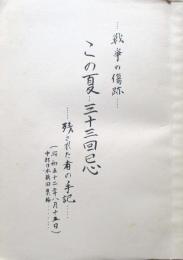 ……戦争の傷跡……
この夏・三十三回忌
……残された者の手記……
（昭和五十二年八月十五日）